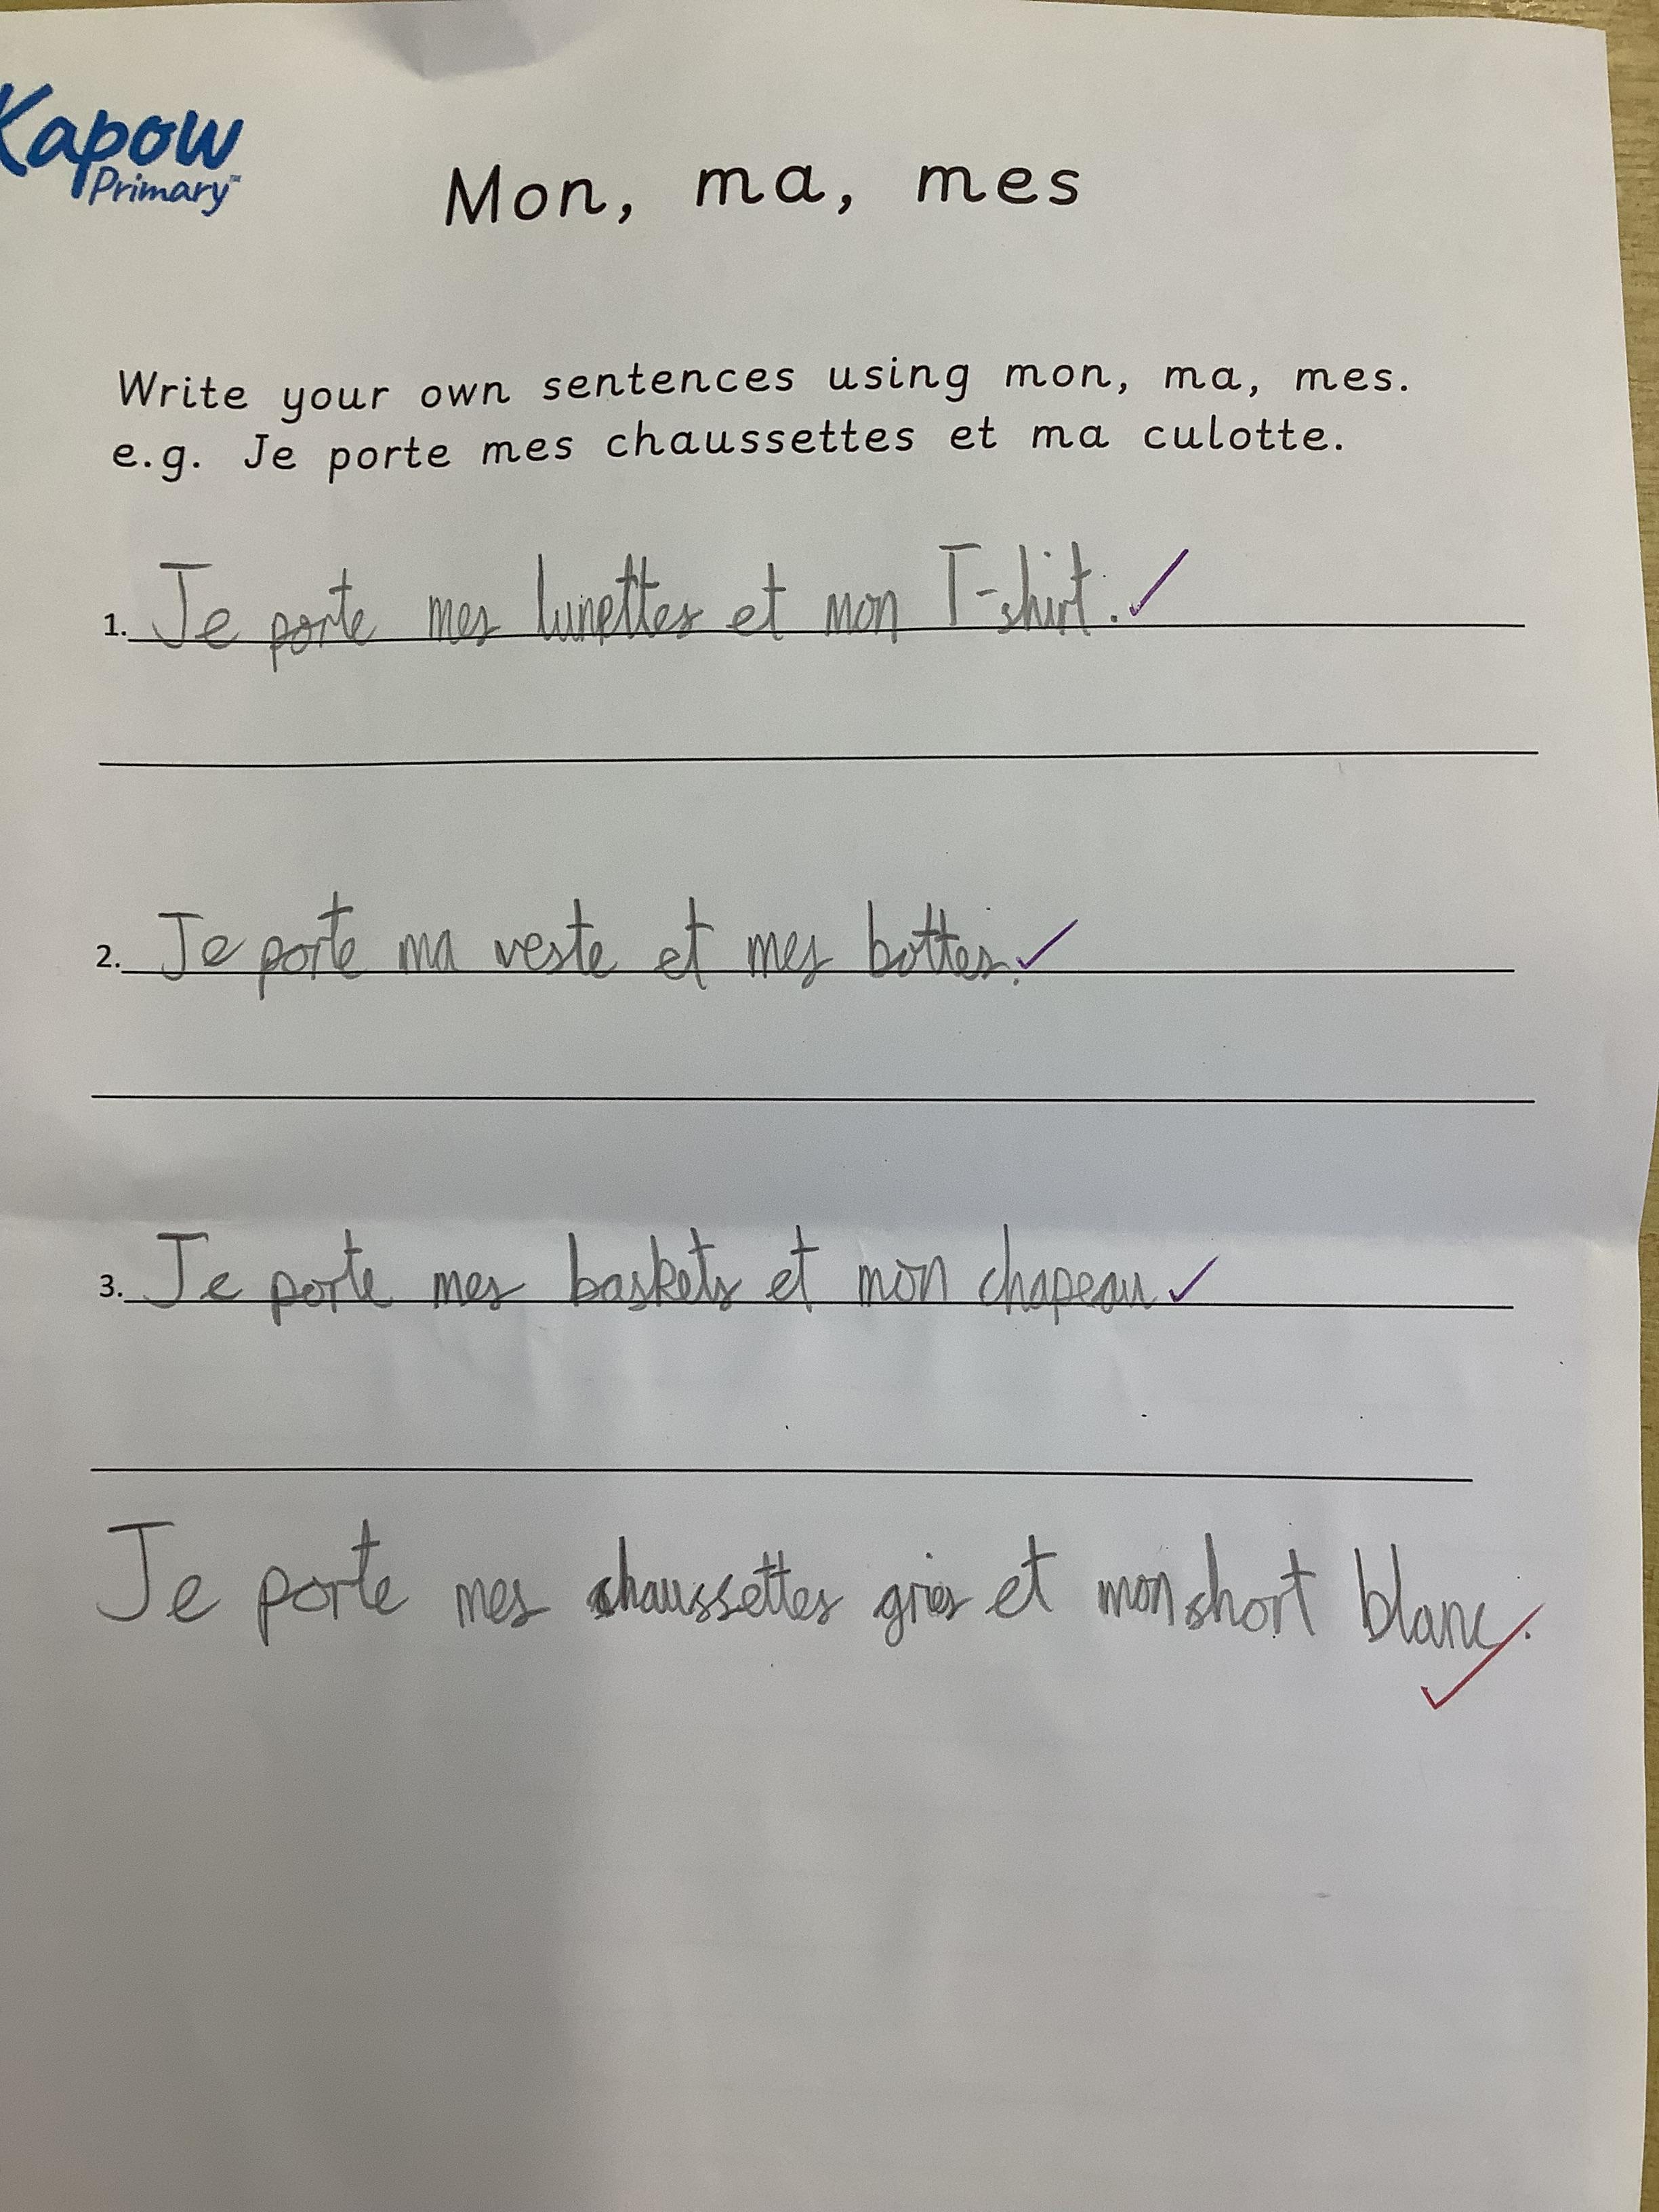 Kapow
Primary™
Mon, ma, mes
Write your own sentences using mon, ma, mes.
e.g. Je porte mes chaussettes et ma culotte.
1. Je porte mes lunettes et mon T-shirt.
2. Je porte ma veste et mes bottes.
3. Je porte mes baskets et mon chapeau
Je porte mes chaussettes gries et mon short blanc.